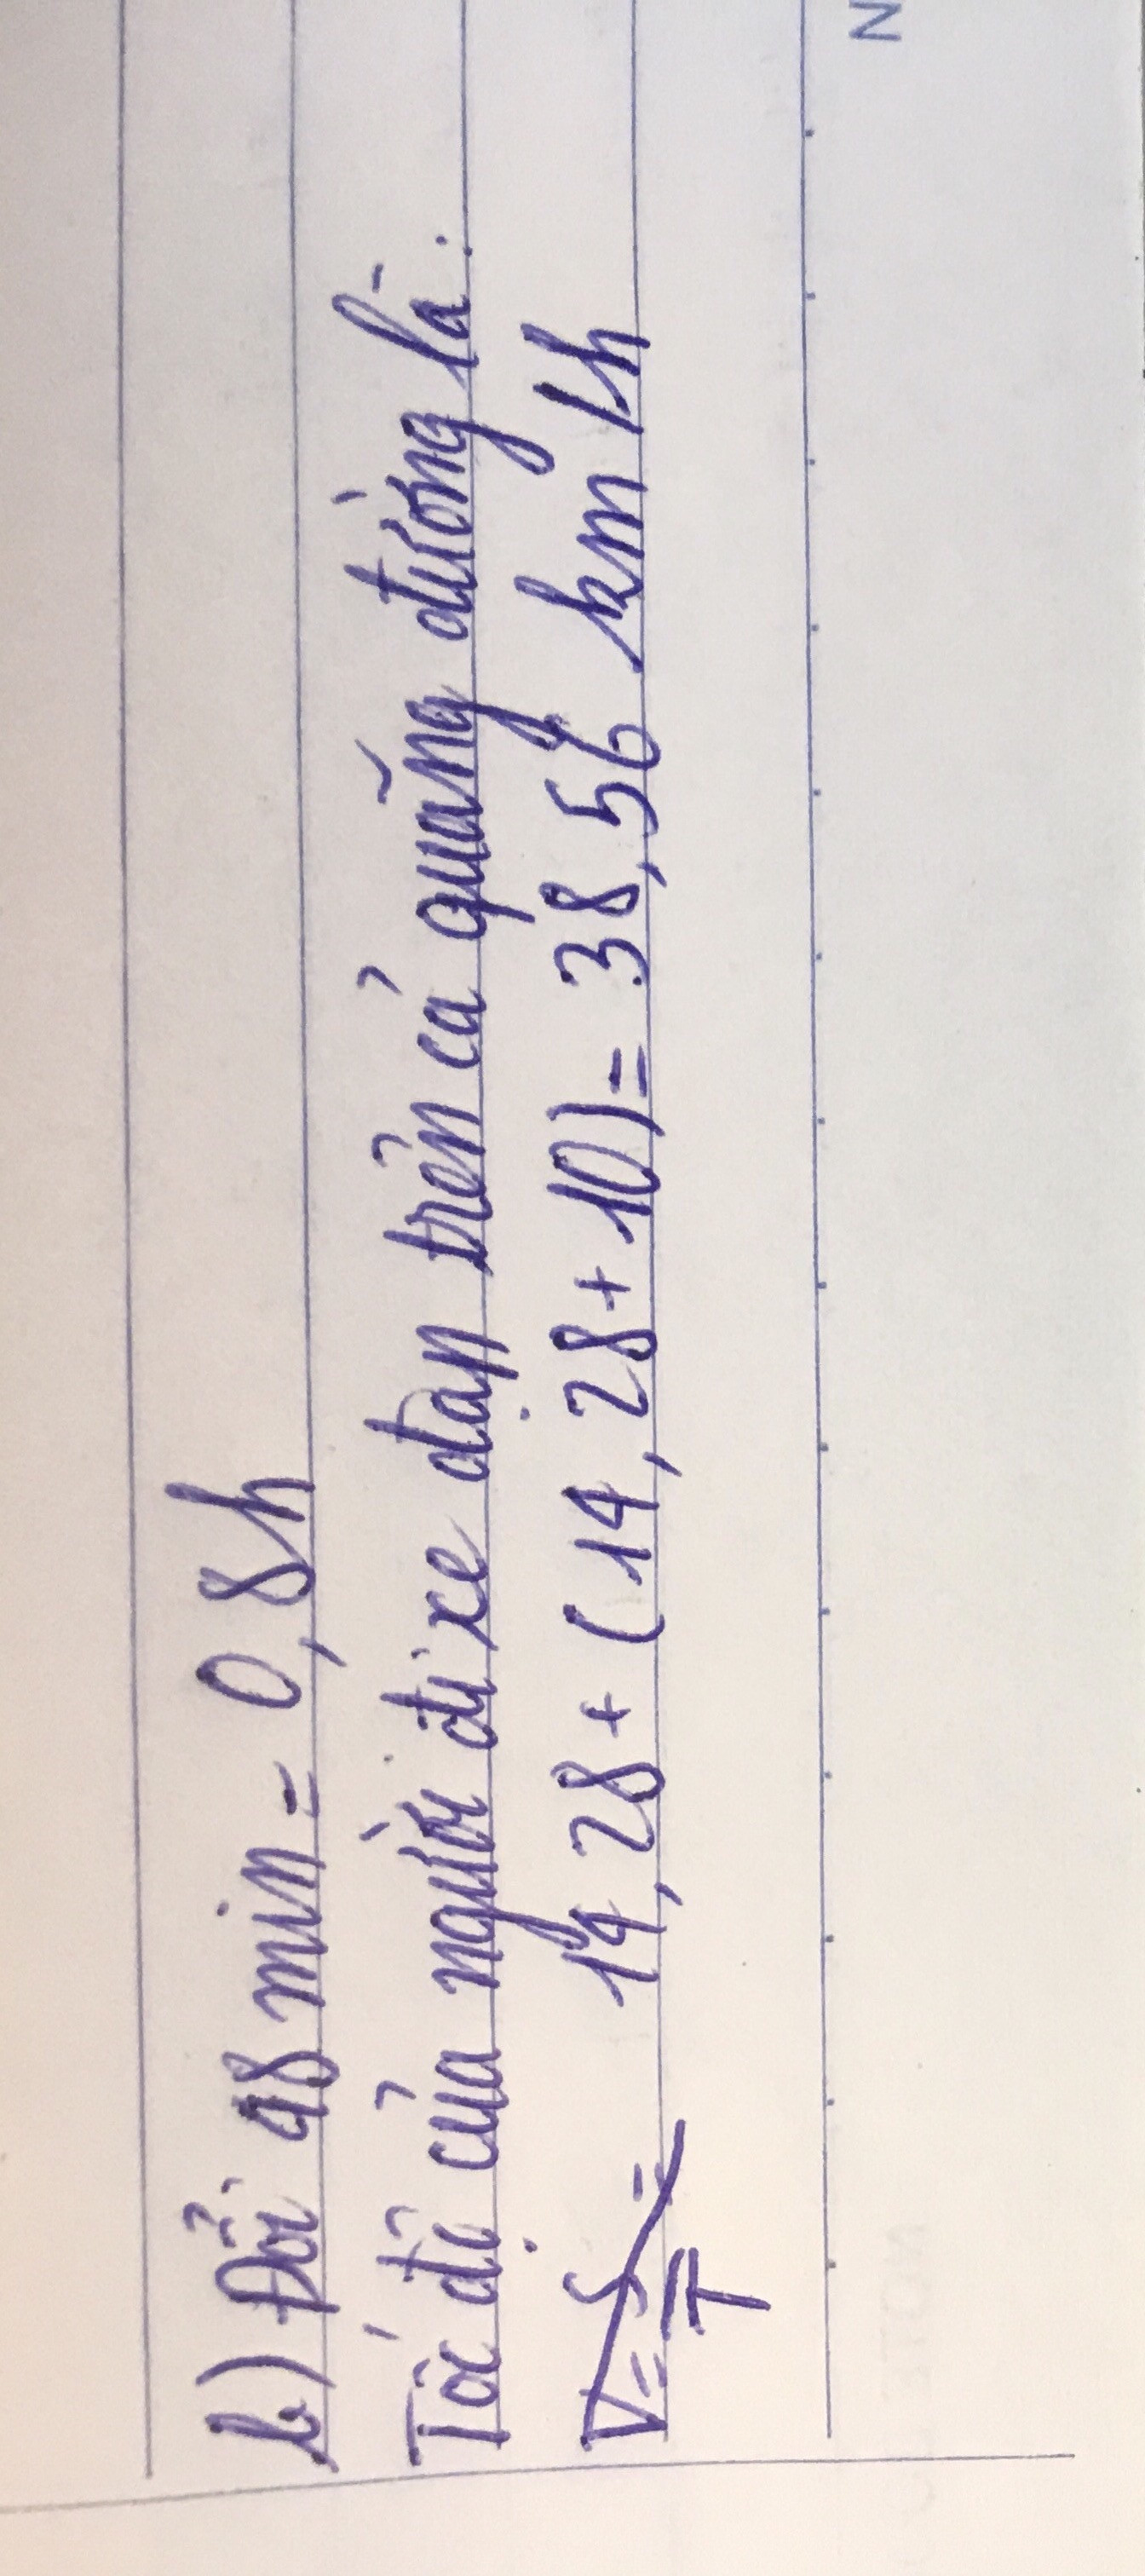 b) Đổi 48 min = 0,8h
Tốc độ của người đi xe đạp trên cả quãng đường là:
V = S/T = 14,28 + (14,28 + 10) = 38,56 km/h
N